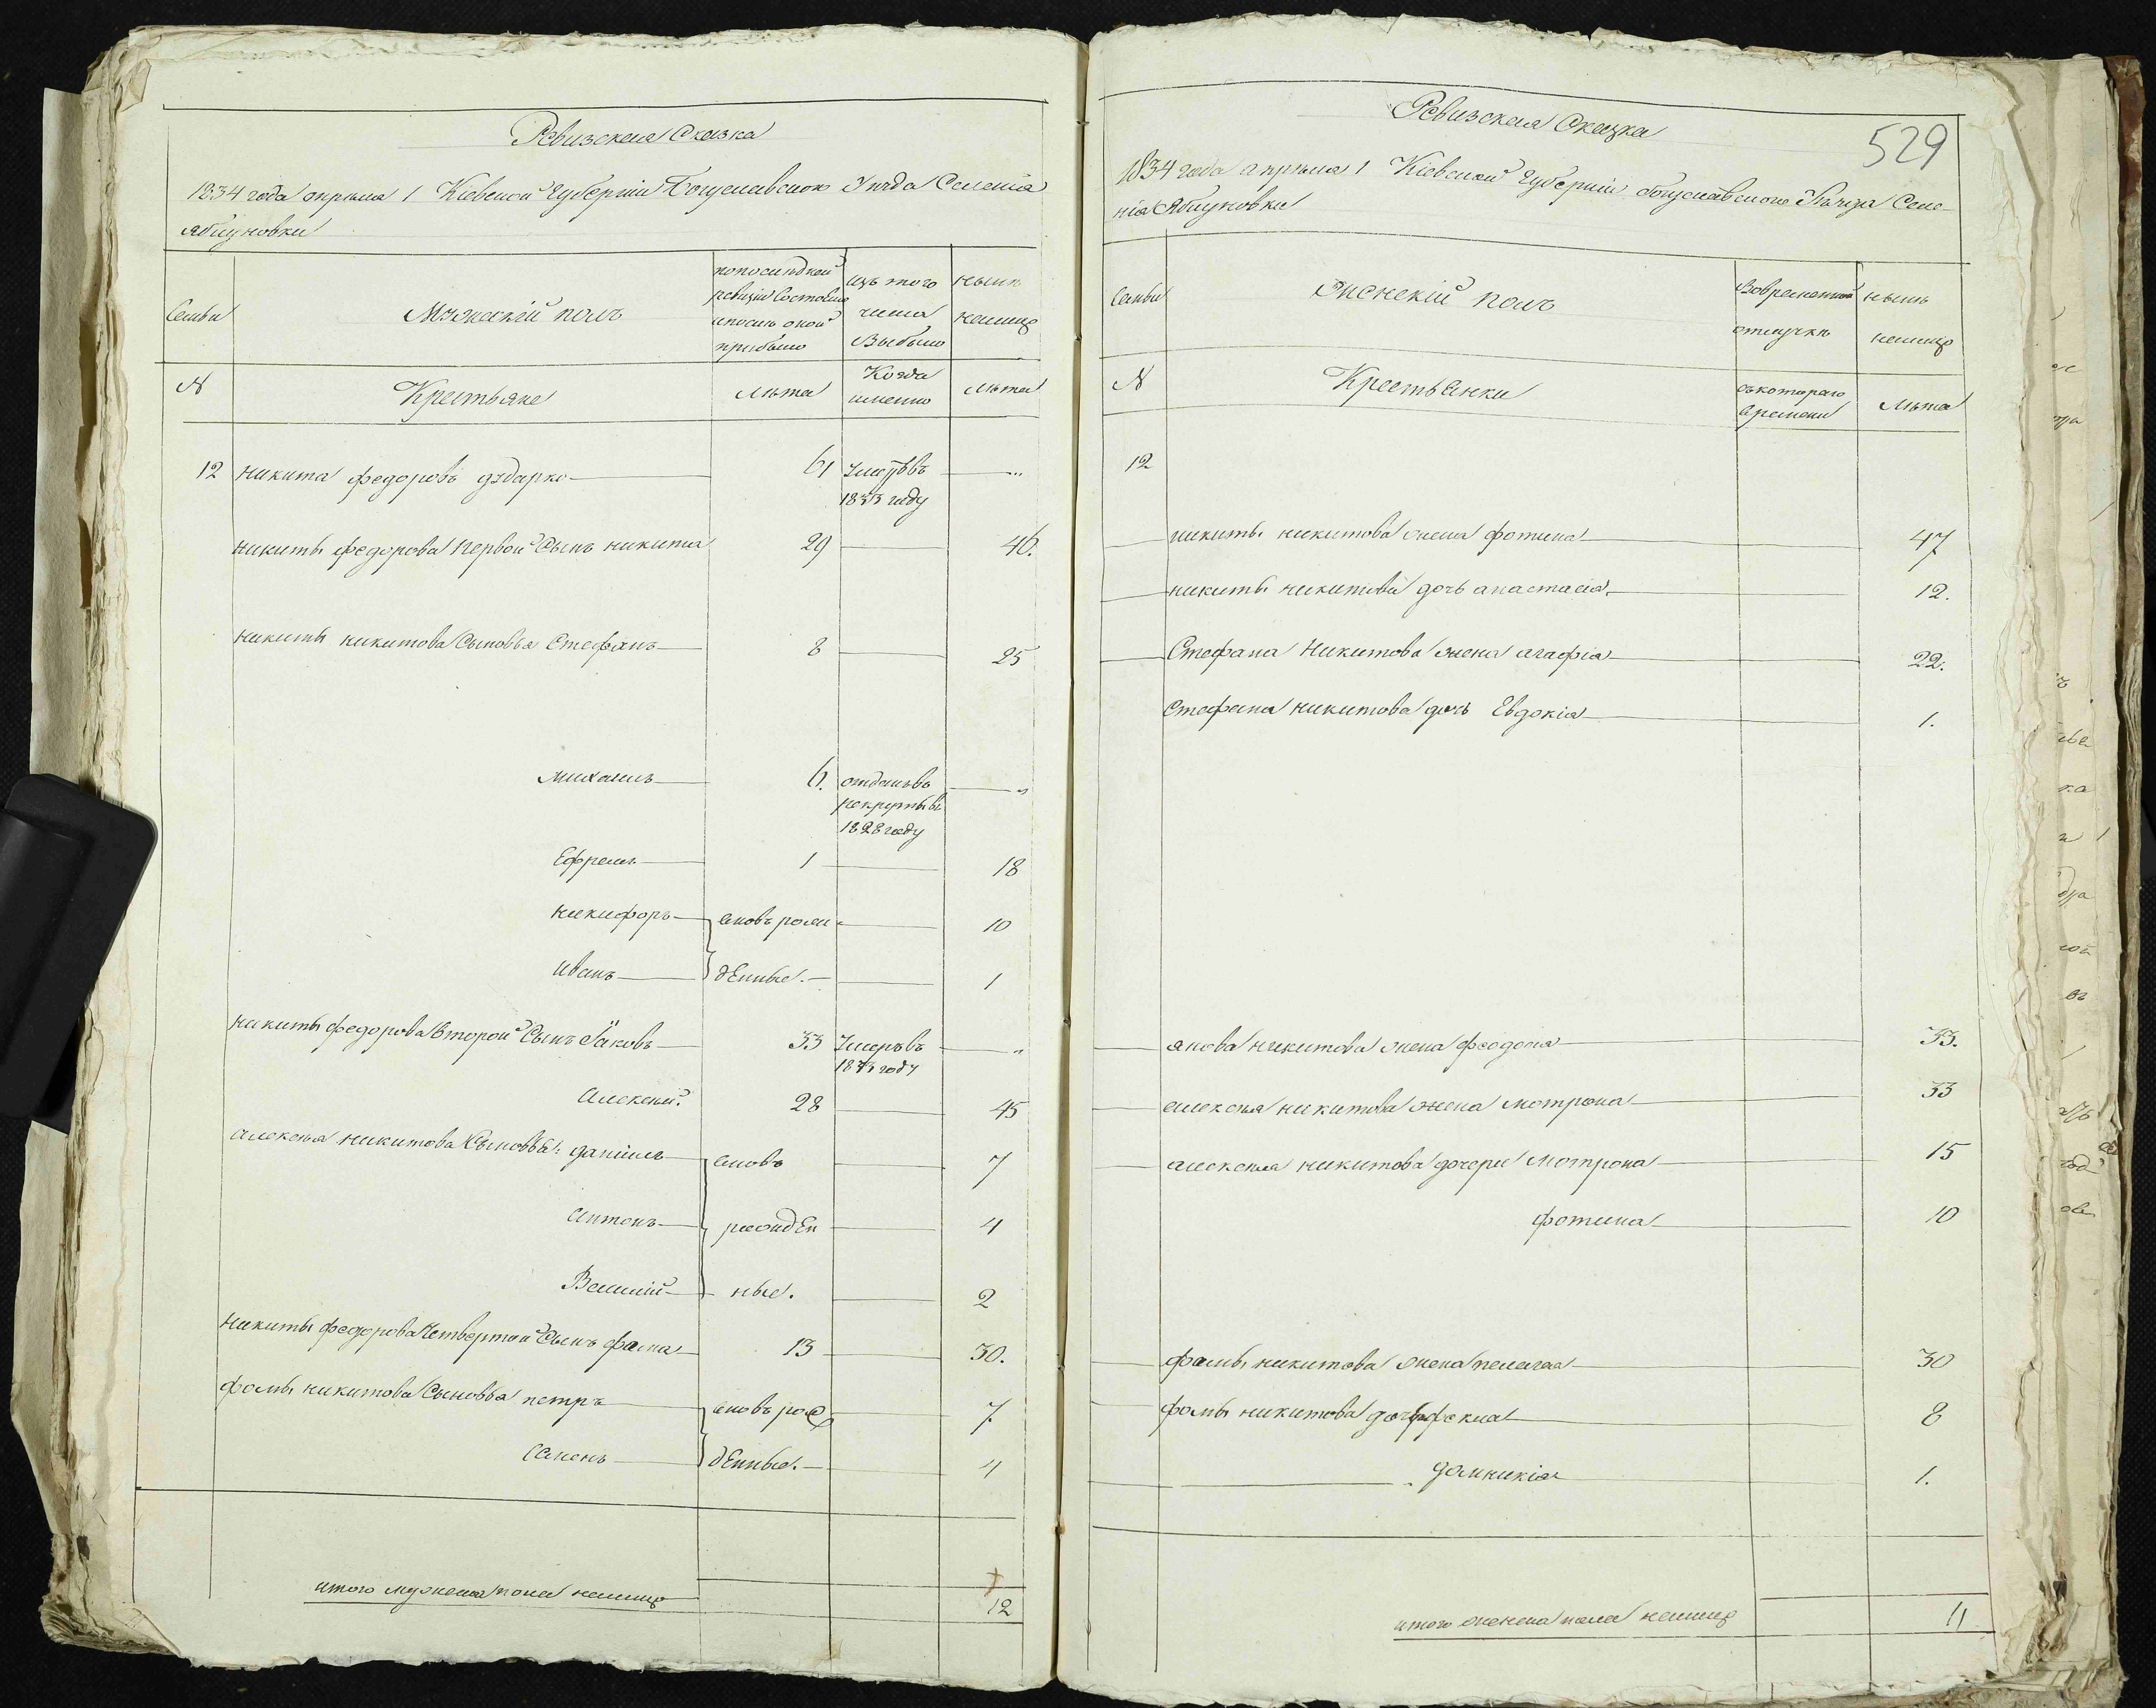 Ревизская Сказка
1834 года апреля 1 Кіевской Губерніи Богуславского Уезда Селенія
Яблуновки
Семьи
Мужескій полъ
по последней ревизіи состояло и после оной прибыло
изъ того числа Выбыло
ныне на лицо
№
Крестьяне
Лета
Когда именно
лета
12 никита федоровъ дударко 61 Умеръ въ 1833 году „
никиты федорова первой Сынъ никита 29 46.
никиты никитова Сыновья Стефанъ 8 25
михаилъ 6. отданъ въ рекруты въ 1828 году „
Ефремъ 1 18
никифоръ вновь рож 10
иванъ дЕнные. 1
никиты федорова Второй Сынъ Яковъ 33 Умеръ въ году „
Алексей 28 45
алексея никитова Сыновья: даніилъ вновь 7
Антонъ рождЕн 4
Василій ные. 2
никиты федорова Четвертой Сынъ фама 13 30.
фомы никитова Сыновья петръ вновь рож 7.
Семенъ дЕнные. 4
итого мужеска пола на лицо 12
529
Ревизская Сказка
1834 года апреля 1 Кіевской Губерніи Богуславского Уезда Селе-
нія Яблуновки
Семьи
Женскій полъ
Во временной отлучке
ныне на лицо
№
КрестьЯнки
съ которого времени
Лета
12
никиты никитова жена фотина 47
никиты никитова дочь анастасія 12.
Стефана Никитова жена агафія 22.
Стефана никитова дочь Евдокія 1.
якова никитова жена феодосія 33.
алексея никитова жена мотрона 33
алексея никитова дочери Мотрона 15
фотина 10
фомы никитова жена пелагея 30
фомы никитова дочь 8
домникія 1.
итого женска пола на лицо 11